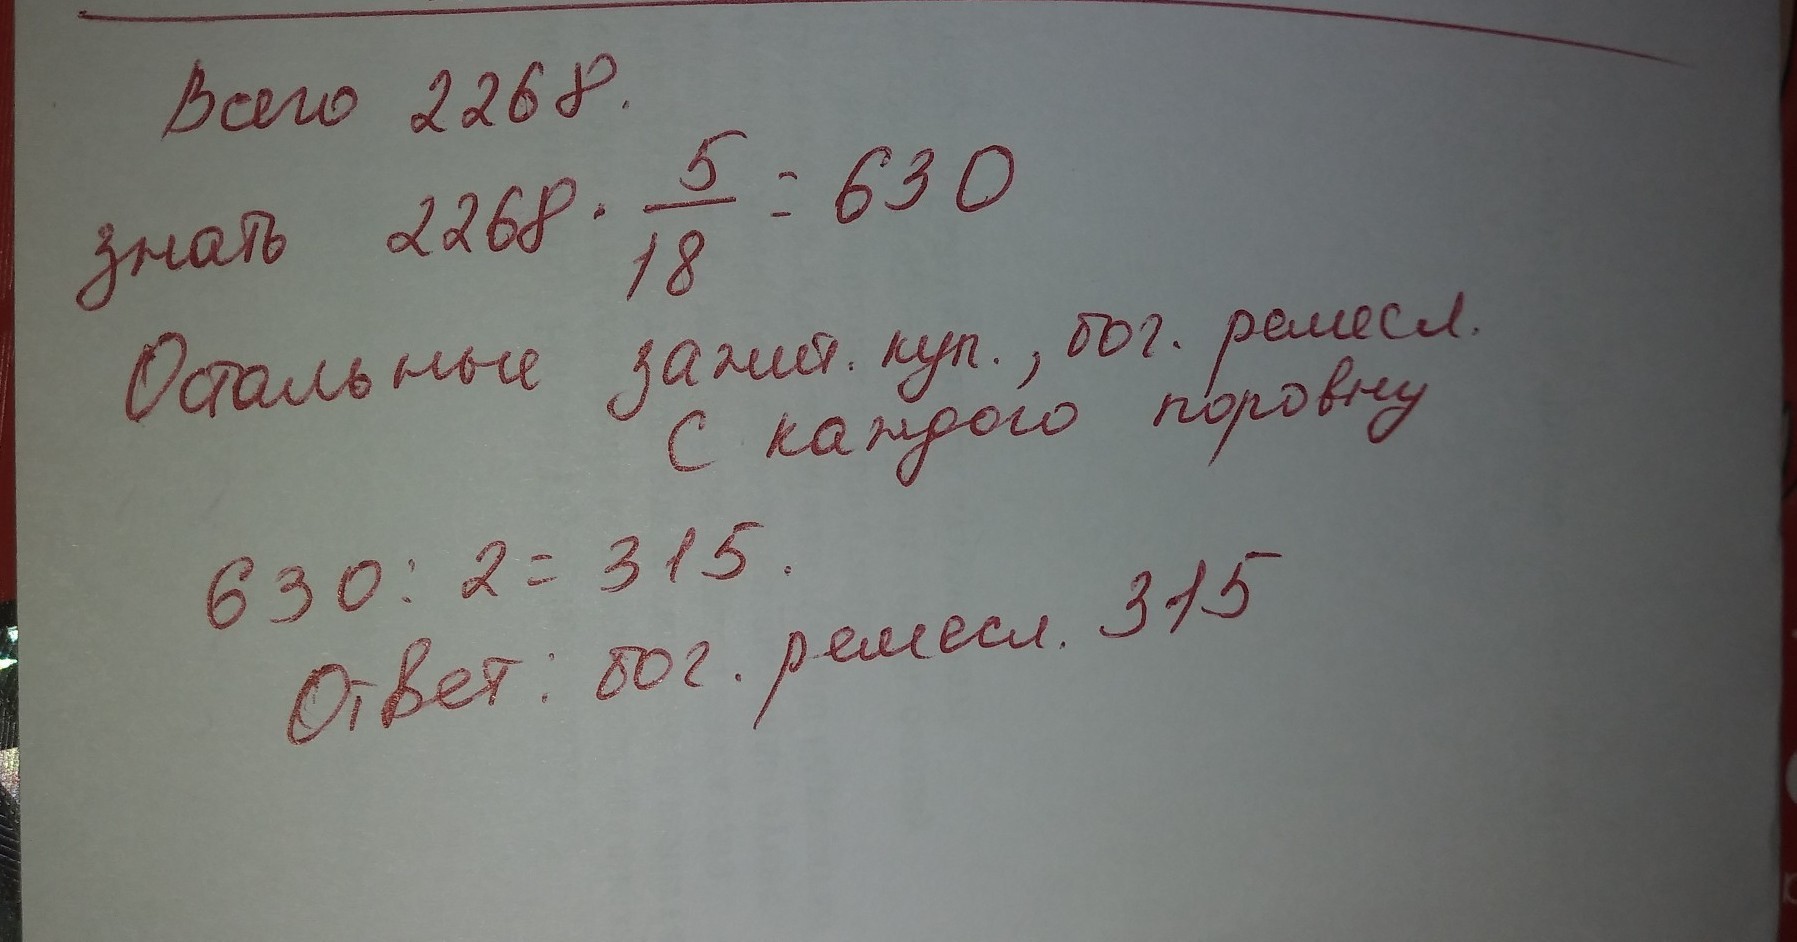 Всего 2268.
знать 2268 · 5/18 = 630
Остальные зажит. куп., бог. ремесл.
С каждого поровну
630 : 2 = 315.
Ответ: бог. ремесл. 315